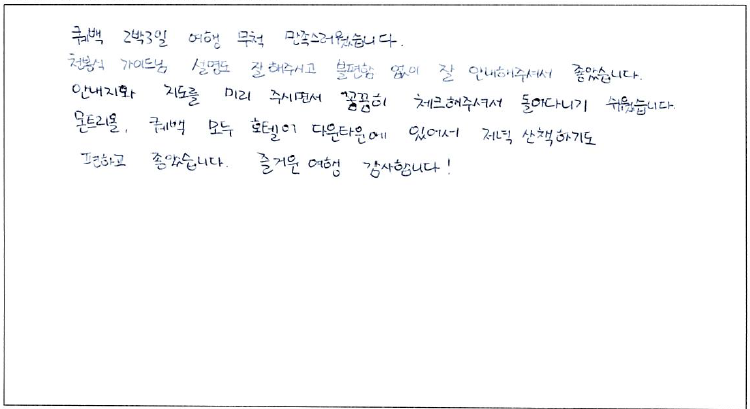 퀘백 2박3일 여행 무척 만족스러웠습니다.
천봉식 가이드님 설명도 잘해주시고 불편함 없이 잘 안내해주셔서 좋았습니다.
안내지와 지도를 미리 주시면서 꼼꼼히 체크해주셔서 돌아다니기 쉬웠습니다.
몬트리올, 퀘백 모두 호텔이 다운타운에 있어서 저녁 산책하기도
편하고 좋았습니다. 즐거운 여행 감사합니다!